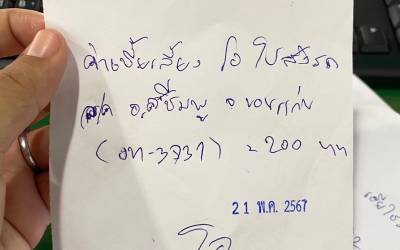 ค่าเบี้ยเลี้ยง โอ ใบสั่งรถ
อ.สีชมพู จ.ขอนแก่น
(อท-3737) = 200 บาท
21 พ.ค. 2567
โอ